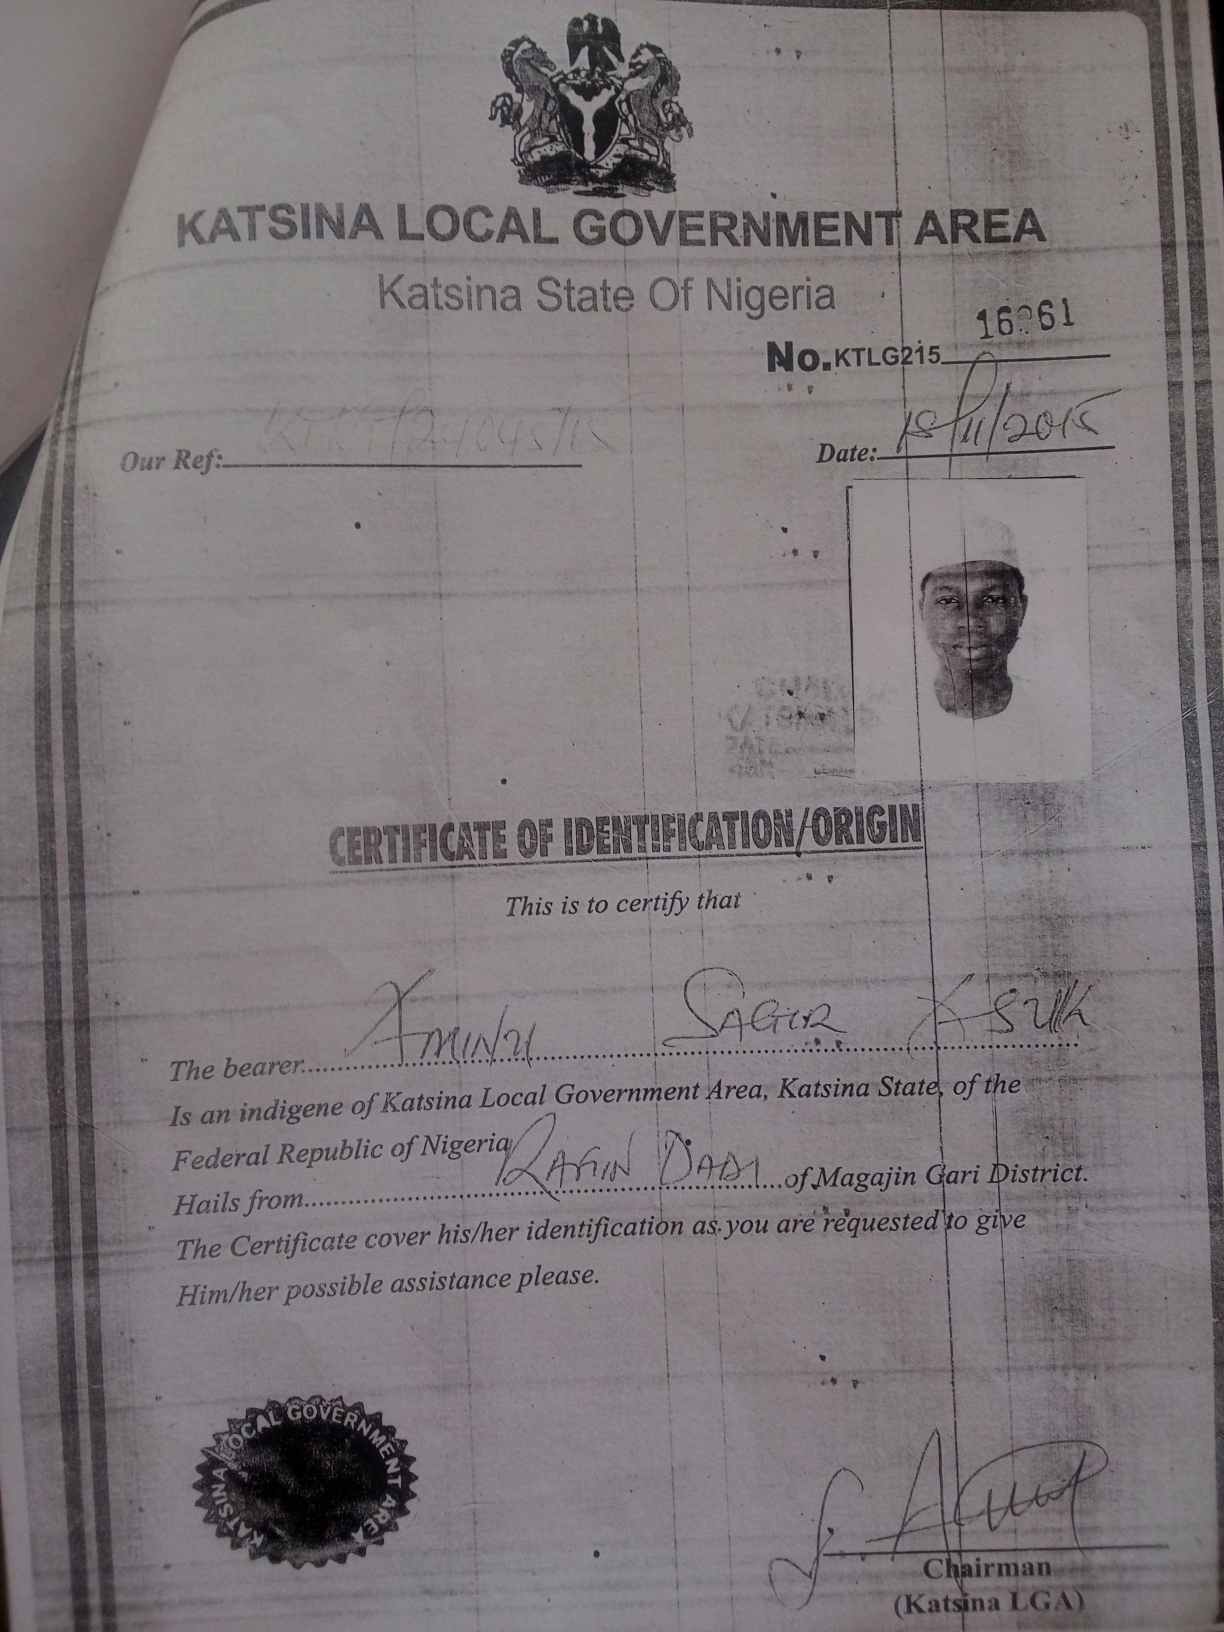 KATSINA LOCAL GOVERNMENT AREA
Katsina State Of Nigeria
No. KTLG215
Our Ref:
Date: 18/11/2015
CERTIFICATE OF IDENTIFICATION/ORIGIN
This is to certify that
The bearer AMINU SAGIR
Is an indigene of Katsina Local Government Area, Katsina State, of the
Federal Republic of Nigeria
Hails from RAFIN DADI of Magajin Gari District.
The Certificate cover his/her identification as you are requested to give
Him/her possible assistance please.
KATSINA LOCAL GOVERNMENT AREA
Chairman
(Katsina LGA)